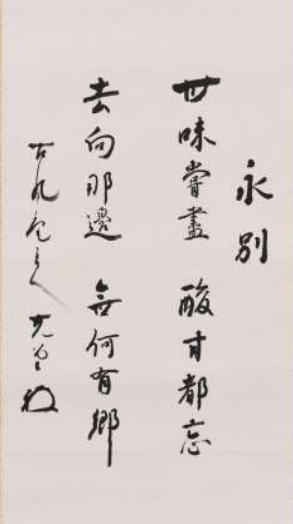 永別
世味嘗盡 酸甘都忘
去向那邊 無何有鄉
古凡